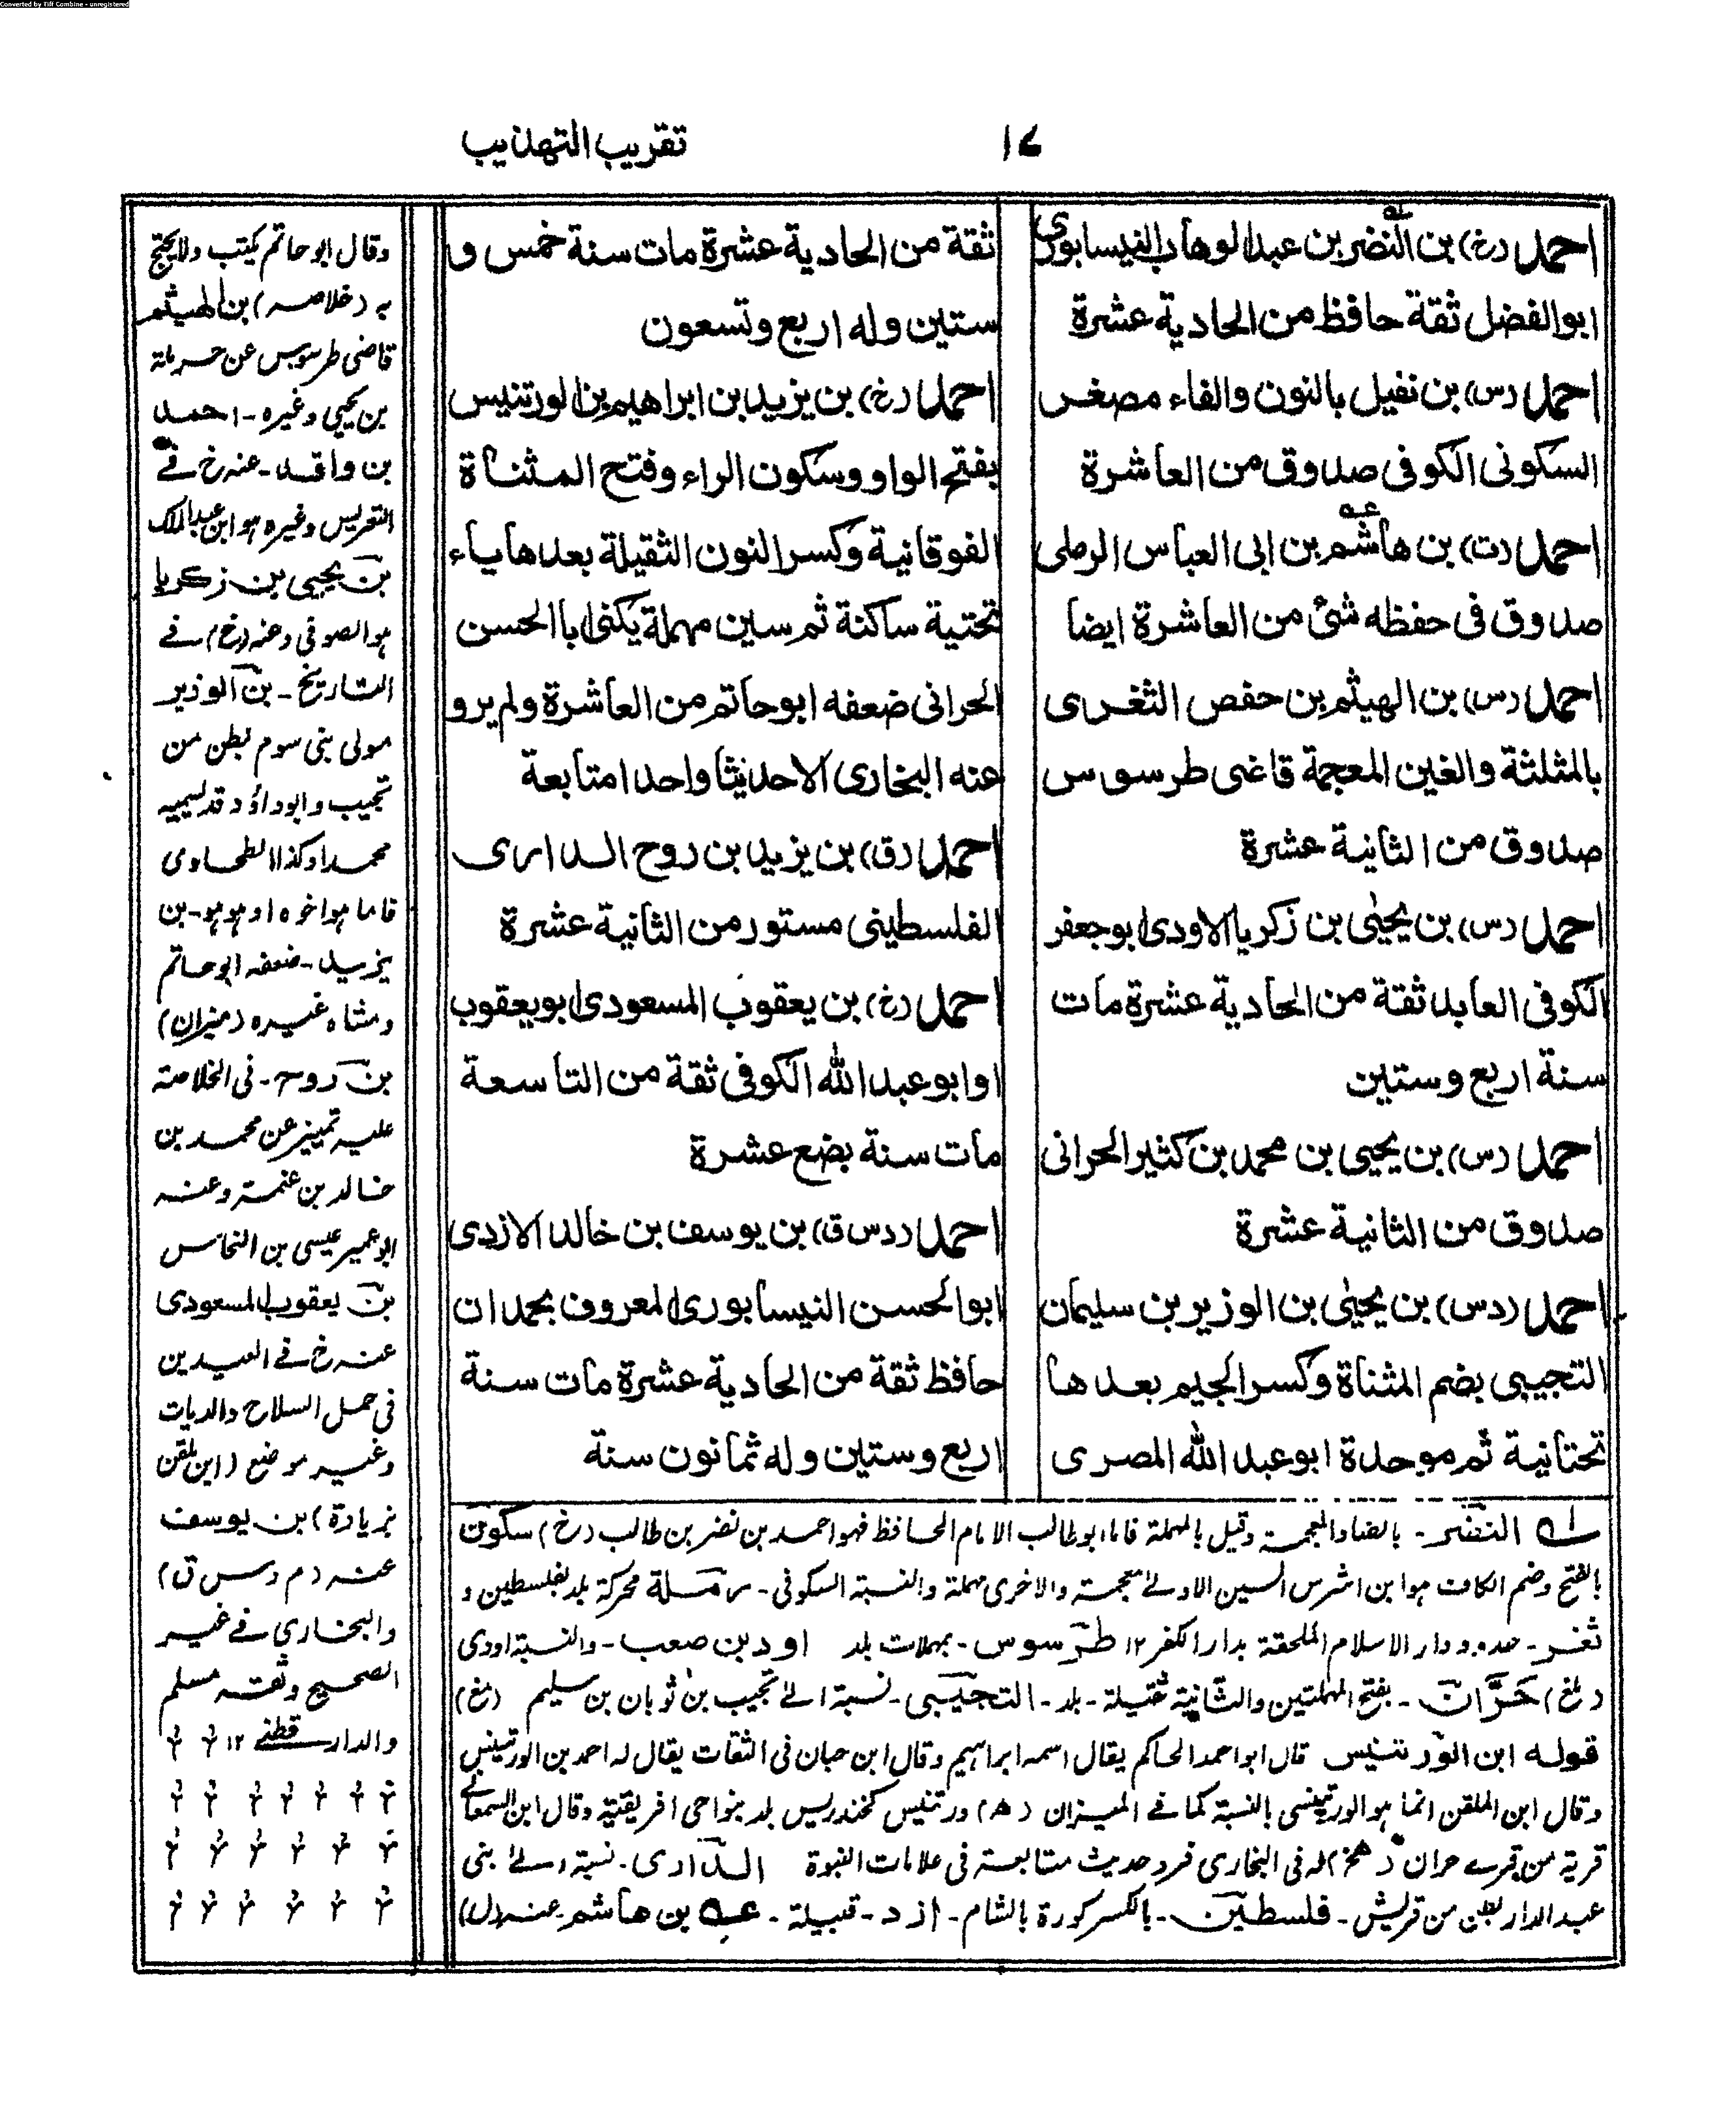 Converted by Tiff Combine - unregistered
١٤
تقريب التهذيب
احمد (خ) بن النضر بن عبد الوهاب النيسابوري
ابو الفضل ثقة حافظ من الحادية عشرة
احمد (س) بن نفيل بالنون والفاء مصغر
السكونى الكوفى صدوق من العاشرة
احمد (ت) بن هاشم بن ابى العباس الرملى
صدوق فى حفظه شئ من العاشرة ايضا
احمد (س) بن الهيثم بن حفص الثغرى
بالمثلثة والغين المعجمة قاضى طرسوس
صدوق من الثانية عشرة
احمد (س) بن يحيى بن زكريا الاودى ابو جعفر
الكوفى العابد ثقة من الحادية عشرة مات
سنة اربع وستين
احمد (س) بن يحيى بن محمد بن كثير الحرانى
صدوق من الثانية عشرة
احمد (دس) بن يحيى بن الوزير بن سليمان
التجيبى بضم المثناة وكسر الجيم بعدها
تحتانية ثم موحدة ابو عبد الله المصرى
ثقة من الحادية عشرة مات سنة خمس و
ستين وله اربع وتسعون
احمد (خ) بن يزيد بن ابراهيم بن الورتنيس
بفتح الواو وسكون الراء وفتح المثناة
الفوقانية وكسر النون الثقيلة بعدها ياء
تحتية ساكنة ثم سين مهملة يكنى ابا الحسن
الحرانى ضعفه ابو حاتم من العاشرة ولم يرو
عنه البخارى الا حديثا واحدا متابعة
احمد (ق) بن يزيد بن روح الدارى
الفلسطينى مستور من الثانية عشرة
احمد (خ) بن يعقوب المسعودى ابو يعقوب
او ابو عبد الله الكوفى ثقة من التاسعة
مات سنة بضع عشرة
احمد (دس ق) بن يوسف بن خالد الازدى
ابو الحسن النيسابورى المعروف بحمدان
حافظ ثقة من الحادية عشرة مات سنة
اربع وستين وله ثمانون سنة
وقال ابو حاتم يكتب ولا يحتج
به (خلاصه) بن الهيثم
قاضى طرسوس عن حرملة
بن يحيى وغيره - احمد
بن واقد - عنه خ في
وغيره هو ابن عبد الملك
بن يحيى بن زكريا
هو الصوفي وعنه (خ) في
التاريخ - بن الوزير
مولى بنى سوم بطن من
تجيب وابو داؤد قد يسميه
محمدا وكذا الطحاوى
فاما هو اخوه او هو هو - بن
يزيد - ضعفه ابو حاتم
ومشاه غيره (ميزان)
بن روح - فى الخلاصة
عليه تمييز عن محمد بن
خالد بن عثمة وعنه
ابو عمير عيسى بن النحاس
بن يعقوب المسعودى
عنه خ في العيدين
فى حمل السلاح والديات
وغير موضع (ابن ملقن
بزيادة) بن يوسف
عنه (م دس ق)
والبخاري في غير
الصحيح وثقه مسلم
والدارقطنى ١٢
له النضر - بالضاد المعجمة وقيل بالمهملة فاما ابو طالب الامام الحافظ فهو احمد بن نصر بن طالب (خ) سكون
بالفتح وضم الكاف هو ابن اشرس السين الاولى معجمة والاخرى مهملة والنسبة السكونى - رملة محركة بلد بفلسطين و
ثغر - حدود دار الاسلام الملحقة بدار الكفر ١٢ طرسوس - بمهملات بلد اود بن صعب - والنسبة اودى
(مغ) حران - بفتح المهملتين والثانية ثقيلة - بلد - التجيبى - نسبة الى تجيب بن ثوبان بن سليم (مغ)
قوله ابن الورتنيس قال ابو احمد الحاكم يقال اسمه ابراهيم وقال ابن حبان فى الثقات يقال له احمد بن الورتنيس
وقال ابن الملقن انما هو الورتنيسى بالنسبة كما في الميزان (ه) ورتنيس كخندريس بلد بنواحى افريقية وقال ابن السمعانى
قرية من قرى حران له فى البخارى فرد حديث متابعة فى علامات النبوة الدارى - نسبة الى بنى
عبد الدار بطن من قريش - فلسطين - بالكسر كورة بالشام - ازد - قبيلة - عه بن هاشم عنه (ل)